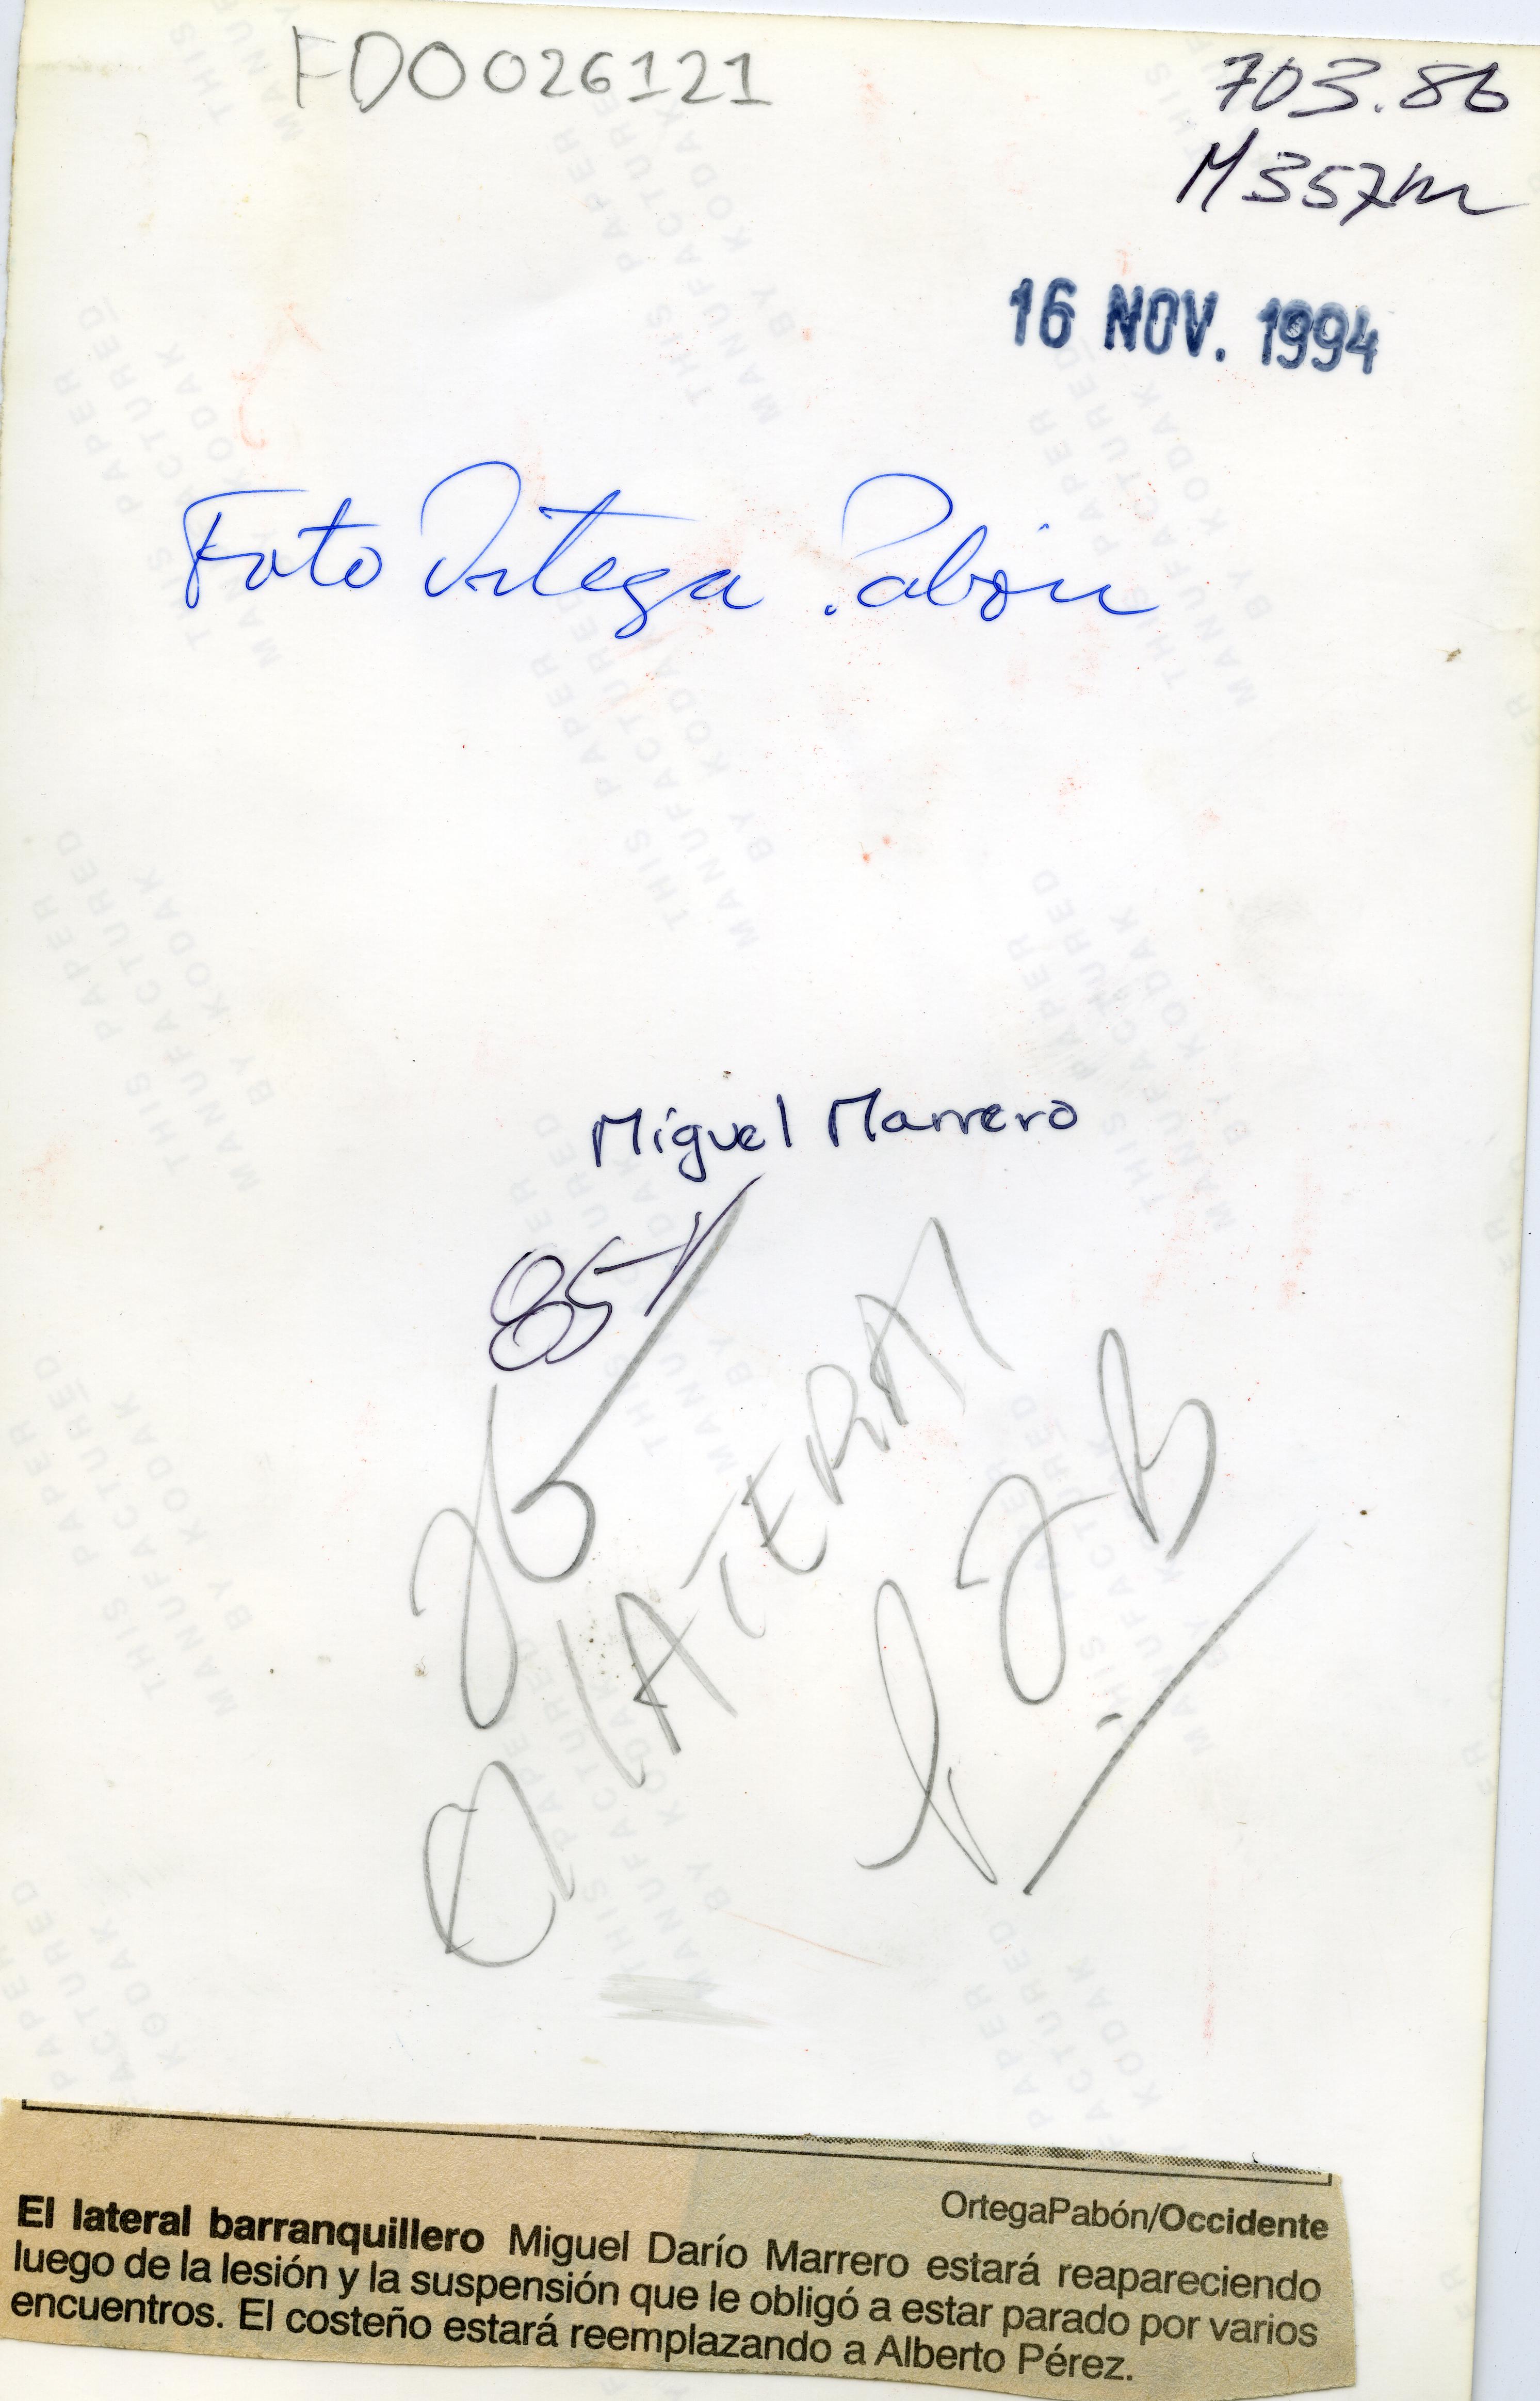 FD0026121
703.86
M357m
16 NOV. 1994
Foto Ortega Pabón
Miguel Marrero
85%
El lATERAl
THIS PAPER
MANUFACTURED
BY KODAK
OrtegaPabón/Occidente
El lateral barranquillero Miguel Darío Marrero estará reapareciendo
luego de la lesión y la suspensión que le obligó a estar parado por varios
encuentros. El costeño estará reemplazando a Alberto Pérez.